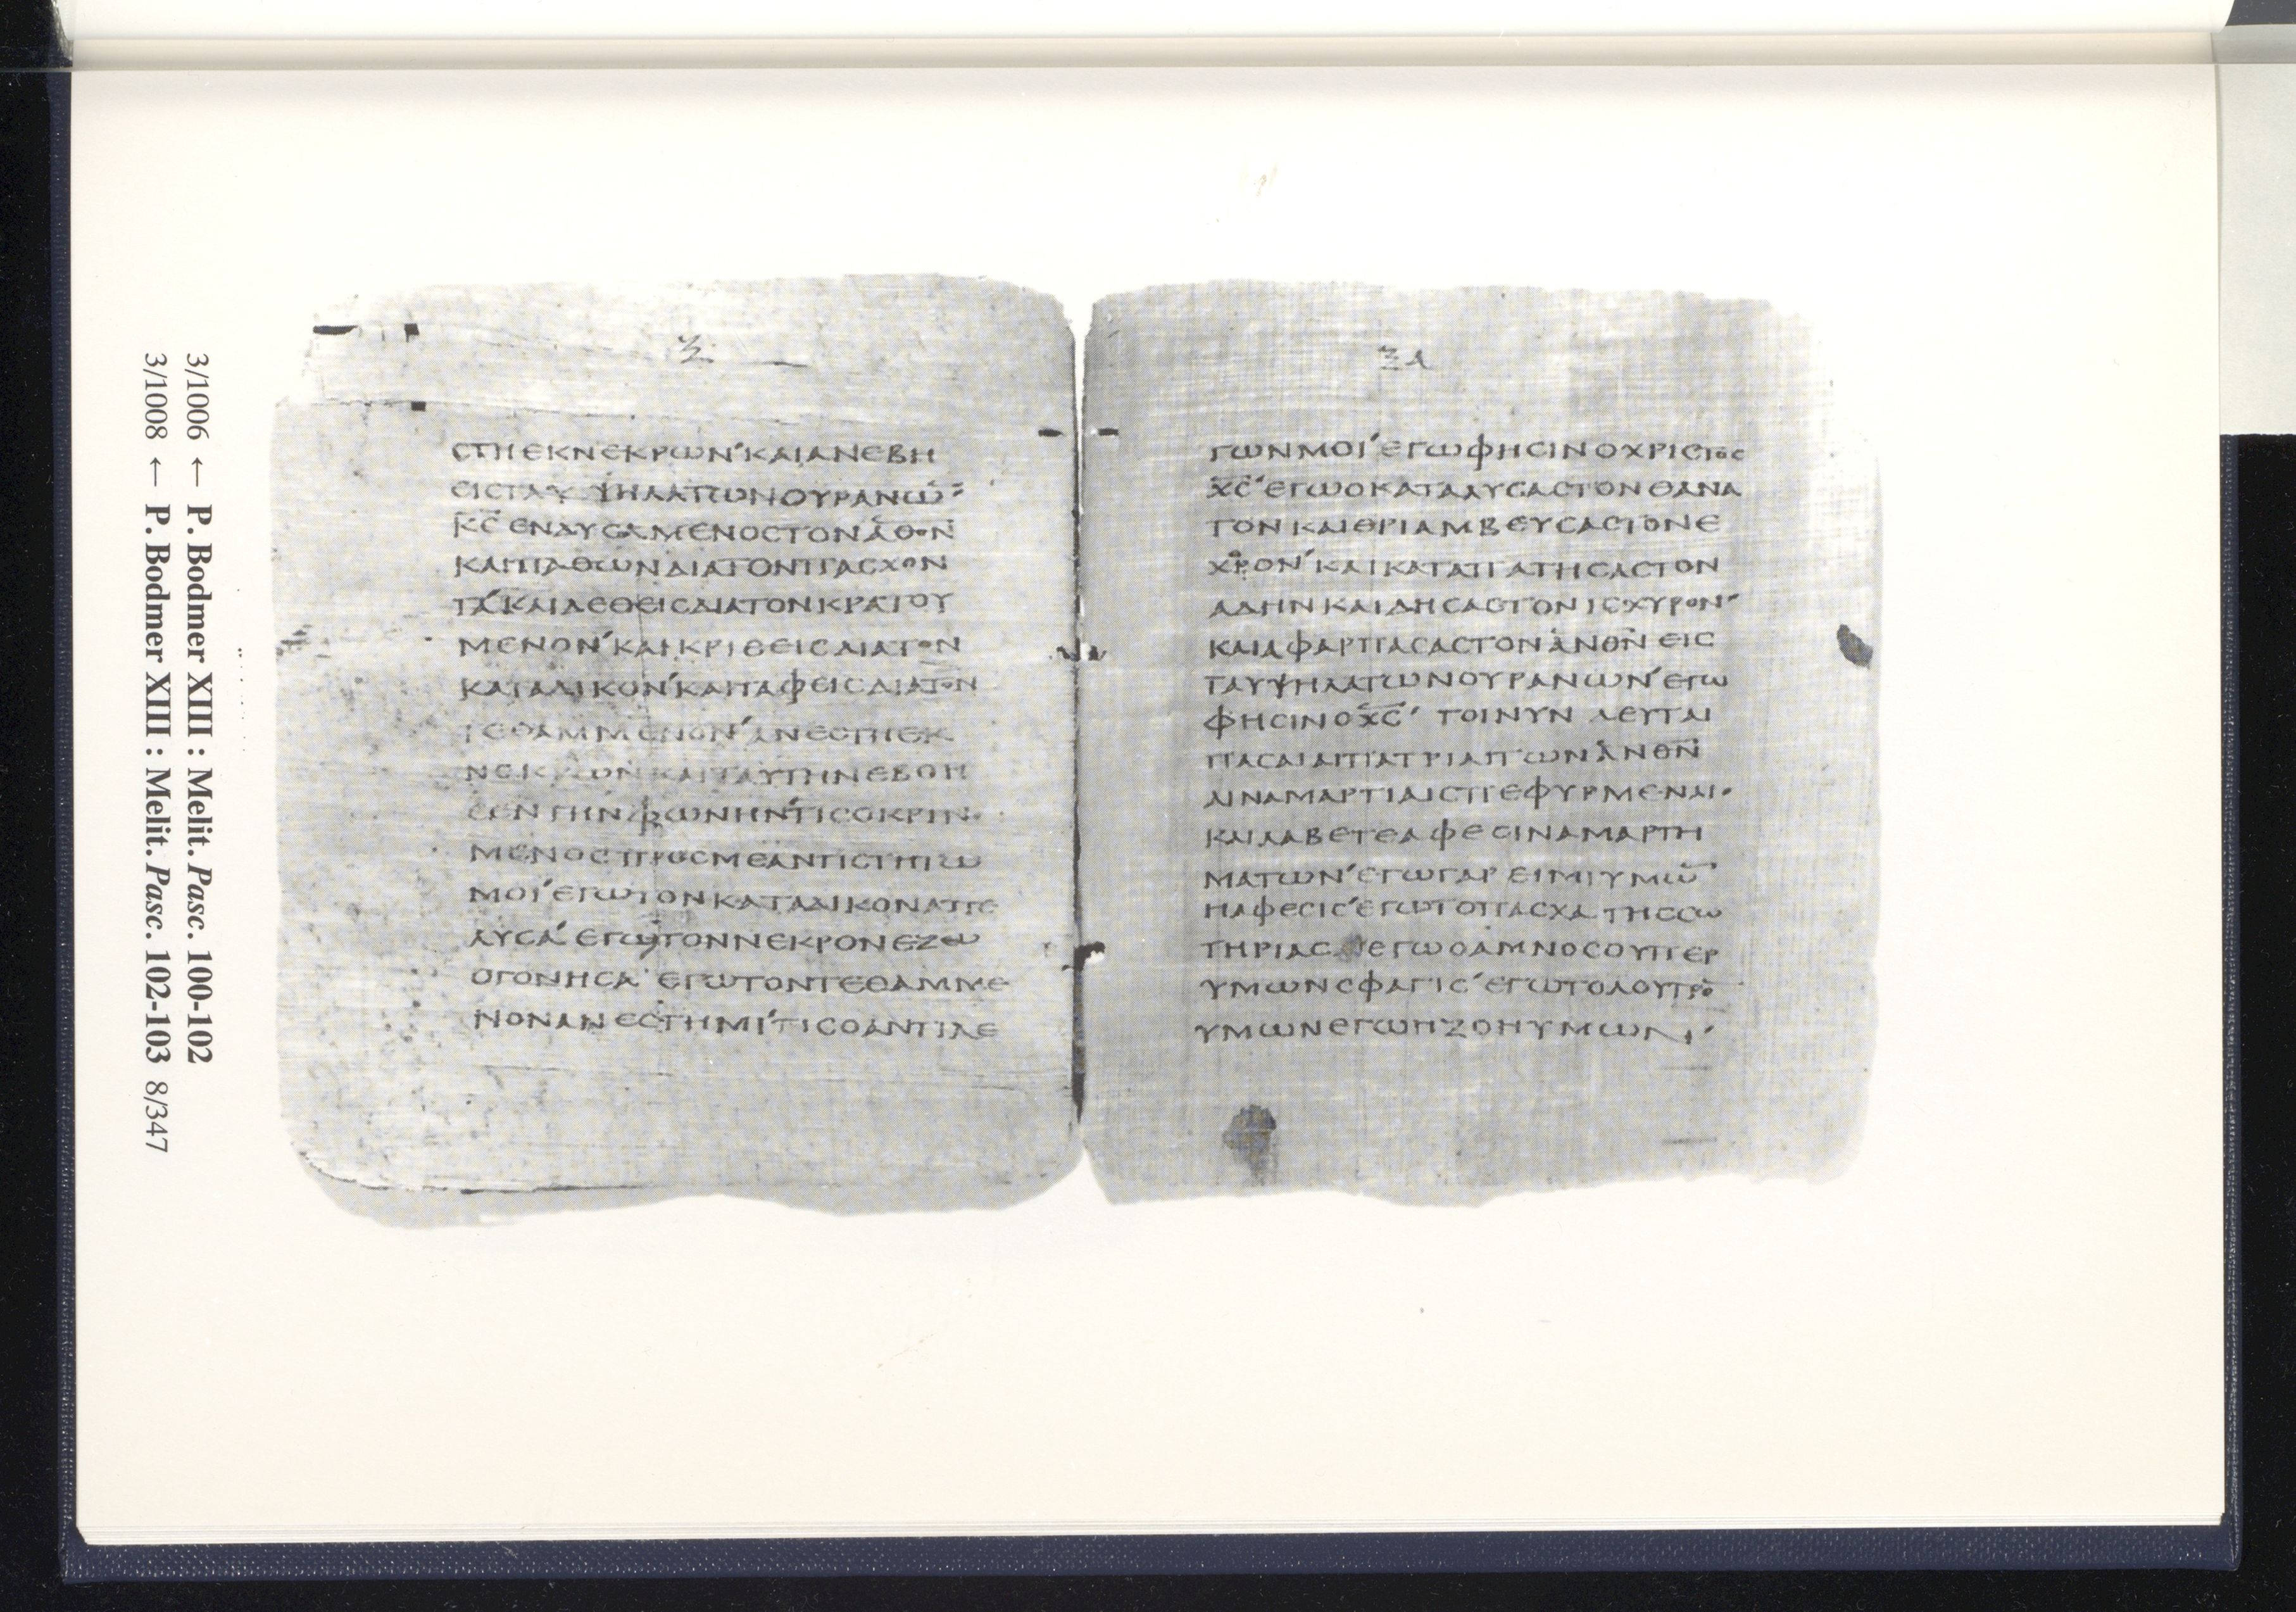 3/1006 ← P. Bodmer XIII : Melit. Pasc. 100-102
3/1008 ← P. Bodmer XIII : Melit. Pasc. 102-103 8/347
Ξ
ϹΤΗΕΚΝΕΚΡΩΝ ̓ΚΑΙΑΝΕΒΗ
ΕΙϹΤΑΥΨΗΛΑΤΩΝΟΥΡΑΝΩ̅
Κ̅Ϲ̅ΕΝΔΥϹΑΜΕΝΟϹΤΟΝΑ̅Ν̅Ο̅Ν̅
ΚΑΙΠΑΘΩΝΔΙΑΤΟΝΠΑϹΧΟΝ
ΤΑ ̓ΚΑΙΔΕΘΕΙϹΔΙΑΤΟΝΚΡΑΤΟΥ
ΜΕΝΟΝ ̓ΚΑΙΚΡΙΘΕΙϹΔΙΑΤΟΝ
ΚΑΤΑΔΙΚΟΝ ̓ΚΑΙΤΑΦΕΙϹΔΙΑΤΟΝ
ΤΕΘΑΜΜΕΝΟΝ ̓ΑΝΕϹΤΗΕΚ
ΝΕΚΡΩΝΚΑΙΤΑΥΤΗΝΕΒΟΗ
ϹΕΝΤΗΝΦΩΝΗΝ ̓ΤΙϹΟΚΡΙΝ
ΜΕΝΟϹΠΡΟϹΜΕΑΝΤΙϹΤΗΤΩ
ΜΟΙ ̓ΕΓΩΤΟΝΚΑΤΑΔΙΚΟΝΑΠΕ
ΛΥϹΑ ̓ΕΓΩΤΟΝΝΕΚΡΟΝΕΖΩ
ΟΓΟΝΗϹΑ ̓ΕΓΩΤΟΝΤΕΘΑΜΜΕ
ΝΟΝΑΝΕϹΤΗΜΙ ̓ΤΙϹΟΑΝΤΙΛΕ
ΞΑ
ΓΩΝΜΟΙ ̓ΕΓΩΦΗϹΙΝΟΧΡΙϹΤΟϹ
Χ̅Ϲ̅ ̓ΕΓΩΟΚΑΤΑΛΥϹΑϹΤΟΝΘΑΝΑ
ΤΟΝΚΑΙΘΡΙΑΜΒΕΥϹΑϹΤΟΝΕ
ΧΘΡΟΝ ̓ΚΑΙΚΑΤΑΠΑΤΗϹΑϹΤΟΝ
ΑΔΗΝΚΑΙΔΗϹΑϹΤΟΝΙϹΧΥΡΟΝ ̓
ΚΑΙΑΦΑΡΠΑϹΑϹΤΟΝΑ̅Ν̅Ο̅Ν̅ΕΙϹ
ΤΑΥΨΗΛΑΤΩΝΟΥΡΑΝΩΝ ̓ΕΓΩ
ΦΗϹΙΝΟΧ̅Ϲ̅ ̓ΤΟΙΝΥΝΔΕΥΤΑΙ
ΠΑϹΑΙΑΙΠΑΤΡΙΑΙΤΩΝΑ̅Ν̅Ο̅Ν̅
ΑΙΝΑΜΑΡΤΙΑΙϹΠΕΦΥΡΜΕΝΑΙ
ΚΑΙΛΑΒΕΤΕΑΦΕϹΙΝΑΜΑΡΤΗ
ΜΑΤΩΝ ̓ΕΓΩΓΑΡΕΙΜΙΥΜΩ̅
ΗΑΦΕϹΙϹ ̓ΕΓΩΤΟΠΑϹΧΑΤΗϹϹΩ
ΤΗΡΙΑϹ ̓ΕΓΩΟΑΜΝΟϹΟΥΠΕΡ
ΥΜΩΝϹΦΑΓΙϹ ̓ΕΓΩΤΟΛΟΥΤΡΟ̅
ΥΜΩΝΕΓΩΗΖΟΗΥΜΩΝ